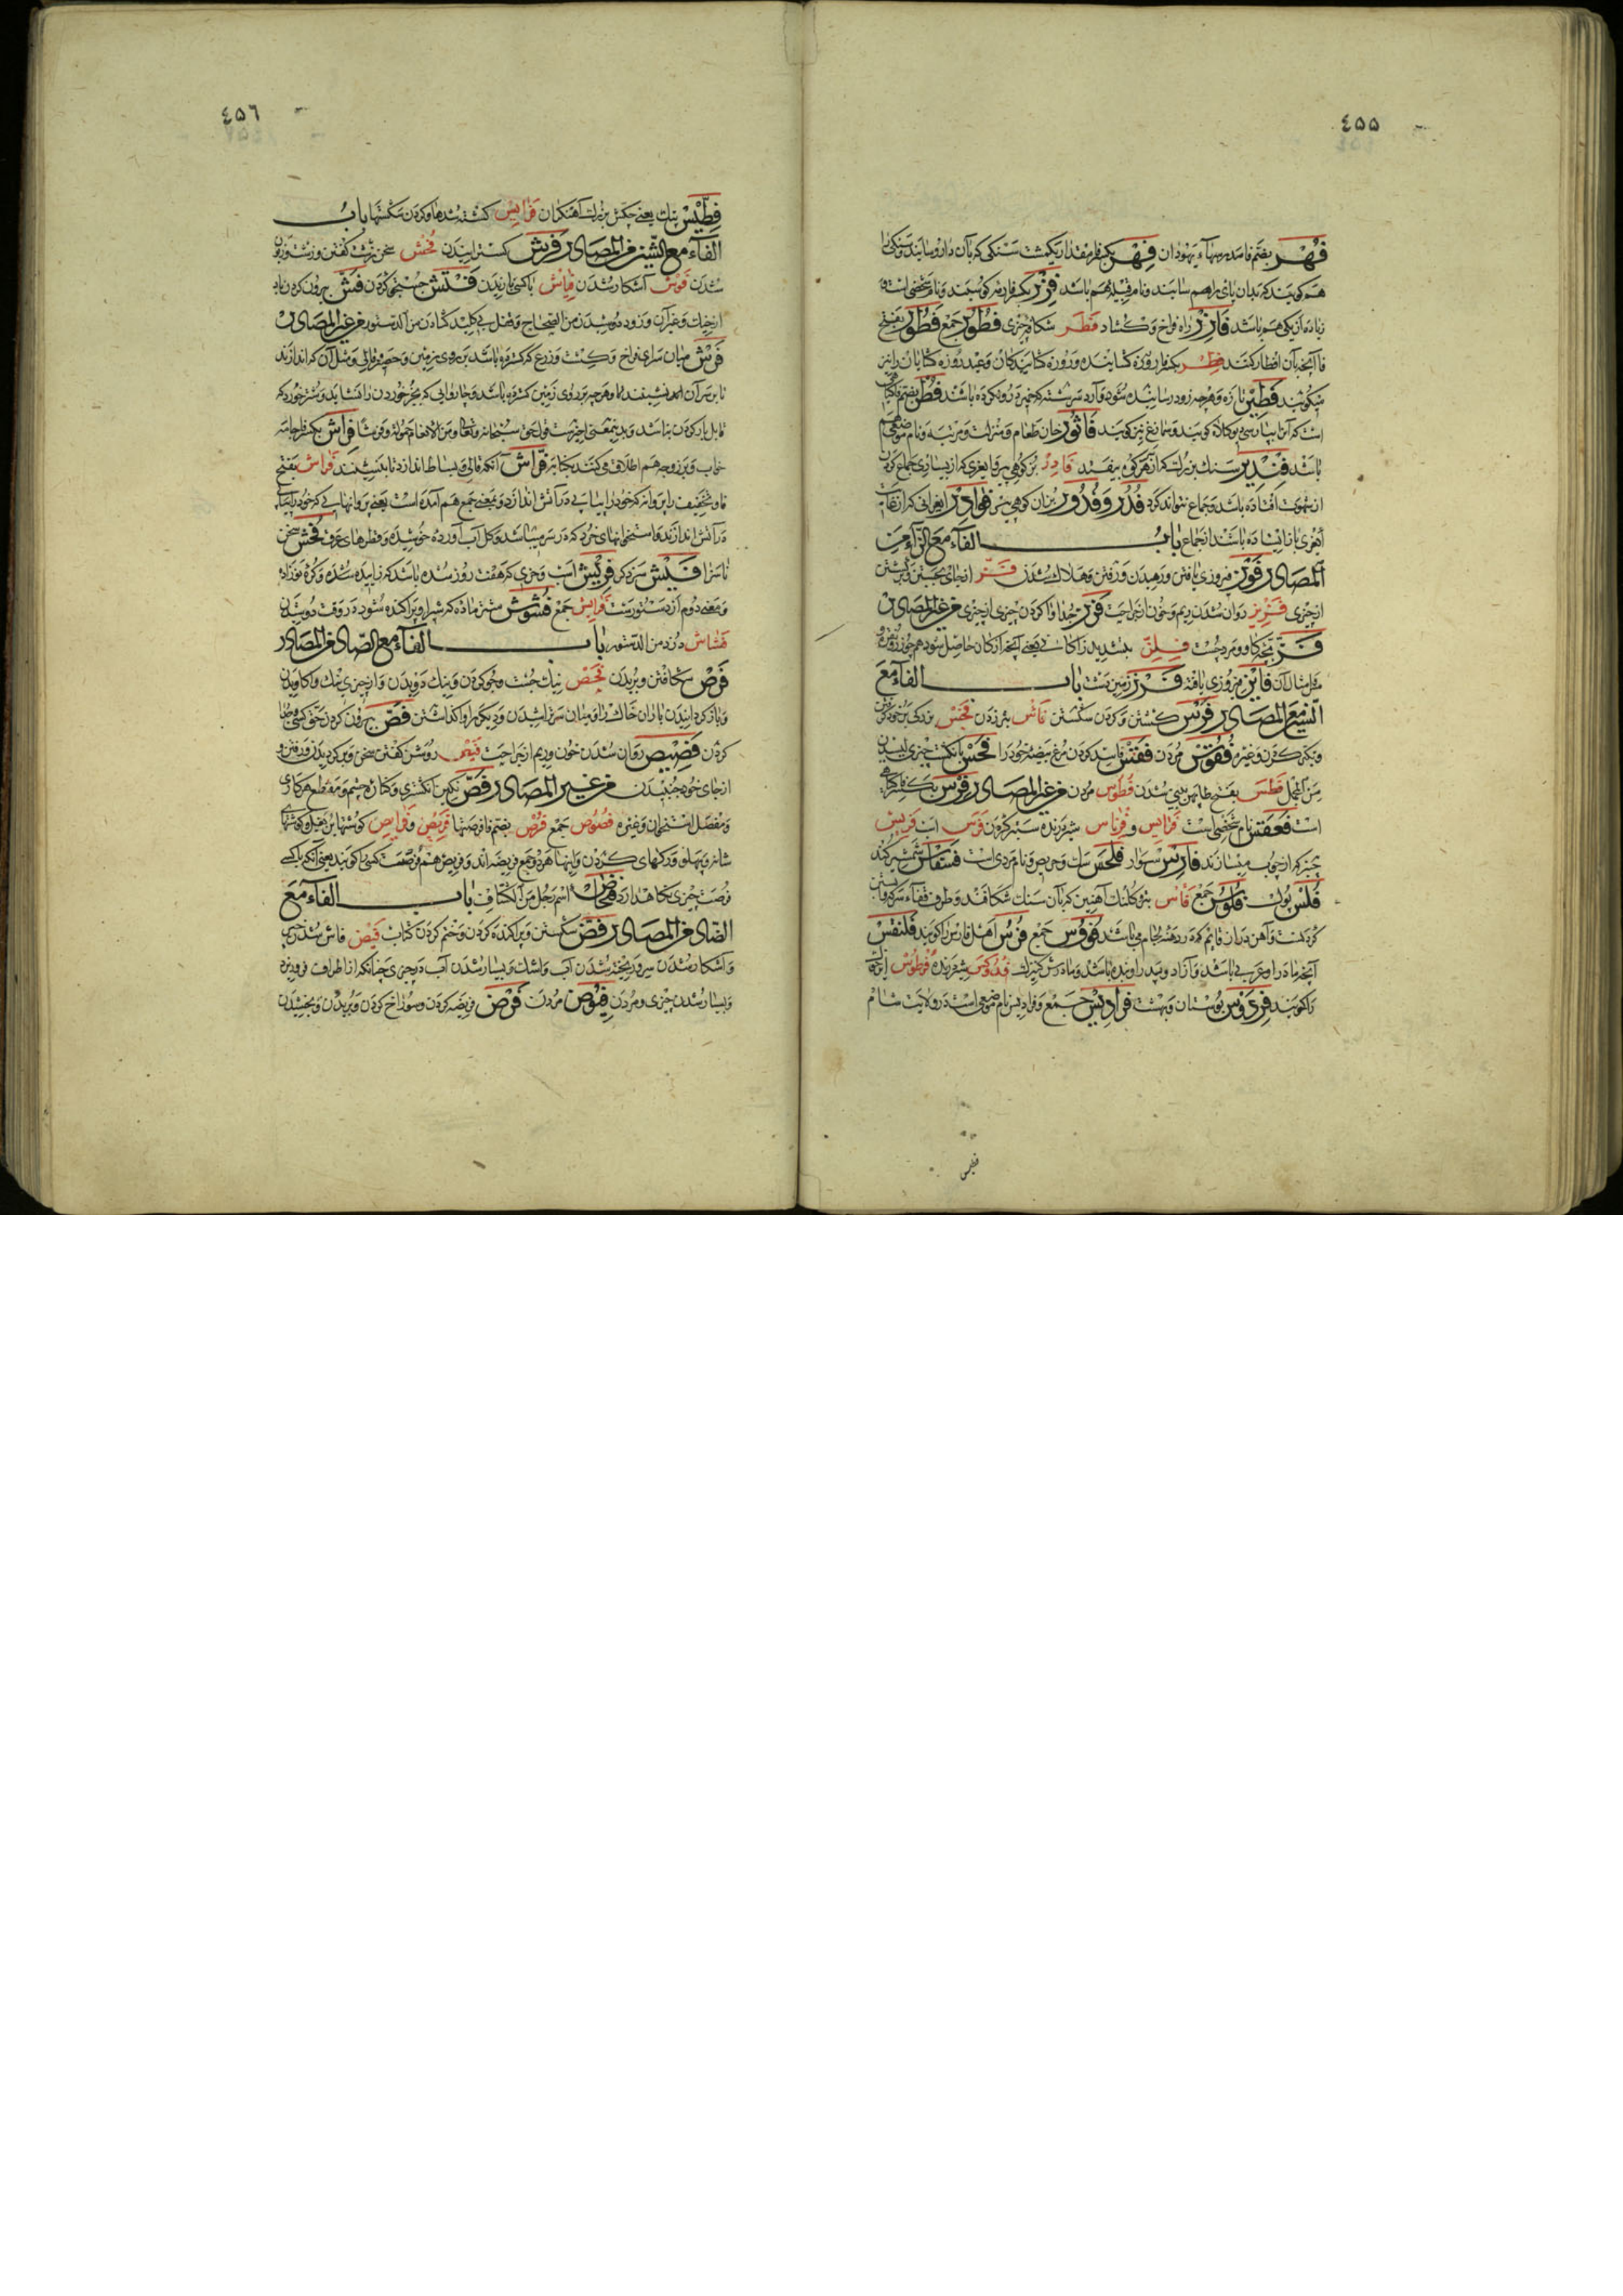 ٤٥٥
فُهْر بضم فا مدرسهاء یهودان فِهْر بکسر فا مقدار یکمشت سنکی که بآن دارو سایند و سنکی را
هم کویند که بدان بای را هم سایند و نام قبیله هم باشد فِزْر بکسر فا رمه کوسفند و نام شخصی است و
زیاده از یکی هم باشد فازِر راه فراخ و کشاد فَطْر شکاف چیزی فُطُور جمع فَطُور بفتح
فا آنچه بآن افطار کنند فِطْر بکسر فا روزه کشاینده و روزه کشایندکان و عید روزه کشایان را نیز
میکویند فَطِیْر تازه و هرچه زود رسانیده شود و آرد سرشته که خمیر درو نکرده باشند فُطْر بضم فا کیاهی
است که آنرا بپارسی کلاه کویند و سماروغ نیز کویند فاثُور خان طعام و منزلت و مرتبه و نام موضعی هم
باشد فِنْدِیر سنک بزرک که از سر کوه بیفتد فادِر بز کوهی پیر یا بزی که از بسیاری جماع کردن
از شهوت افتاده باشد و جماع نتواند کرد فُدُر و فُدُور بزان کوهی پیر فَوادِر
باز ایستاده باشند از جماع باب الفاء مع الزاء من
المصادر فَوْز فیروزی یافتن و رهیدن و رفتن و هلاک شدن فَزّ از جای جستن و برکشتن
از چیزی فَزِیز روان شدن ریم و خون از جراحت فَرْز جدا وا کردن چیزی از چیزی من غیر المصادر
فَزّ بچه کاو و مرد چست فِلِزّ بتشدید زا کانی یعنی آنچه از کان حاصل شود همچو زر و نقره و
مثل آن فایِز فیروزی یافته فَرْز زمین پست باب الفاء مع
السین من المصادر فَرْس کشتن و کردن شکستن فَأْس تبر زدن فَجْس بزرکی بر خود کرفتن
و تکبر کردن و غیره فُقُوس مردن فَقْس فاسد کردن مرغ بیضه خود را فَحْس بانکشت چیزی لیسیدن
من المجمل فَطَس بفتح طا پهن بینی شدن فُطُوس مردن من غیر المصادر فِرْس بکسر فا کیاهی
است فَقْعَس نام شخصی است فُرانِس و فِرْناس شیر درنده سبتر کردن فَرَس اسب فَرِیس
چنبر که از چوب میسازند فارِس سوار فَلْحَس سک و حریص و نام مردی است فَسْفاس شمشیر کند
فَلْس پول فُلُوس جمع فَأْس تبر و کلنک آهنین که بآن سنک شکافند و طرف قفاء سر که با بستن
کردنست و آهن دران قایم که در دهنه لجام می باشد فُؤُوس جمع فُرْس اهل فارس را کویند فَلَنْقَس
آنچه مادر او عربی باشد و آزاد و پدر او بنده باشد و مادرش کنیزک فَدَوْکَس شیر درنده فِرْطَوْس
را کویند فِرْدَوْس بوستان و بهشت فَرادِیْس جمع و فرادیس نام موضعی است در ولایت شام
فطیس
٤٥٦
فِطِّیْس پتک یعنی چکش بزرک آهنکران فَرایِس کشته شدها و کردن شکستها باب
الفاء مع الشین من المصادر فَرْش کسترانیدن فُحْش سخن زشت کفتن و زشت و زبون
شدن فَوْش آشکار شدن فِیاش با کسی نازیدن فَتْش جستجو کردن فَشّ بیرون کردن باد
از خیک و غیر آن و زود دوشیدن من الصحاح و قفل بی کلید کشادن من الدستور من غیر المصادر
فَرْش میان سرای فراخ و کشت و زرع که کسترده باشد بر روی زمین و حصیر و قالی و مثل آن که اندازند
تا بر سر آن نشینند و هرچه بر روی زمین کسترده باشد و چاروایی که بجز خوردن را نشاید و شتر خورد که
قابل بار کردن نباشد و بدین معنی اخیرست قول حق سبحانه و تعالی و من الانعام حمولة و فرشا فِراش بکسر فا جامه
خواب و بر زوجه هم اطلاق می کنند بکنایه فَرّاش آنکه قالی و بساط اندازد تا بنشینند فَراش بفتح
فا و تخفیف را پروانه که خود را بر آتش اندازد و بمعنی جمع هم آمده است یعنی پروانهایی که خود را
در آتش اندازند و استخوانهای خرد که در سر میباشد و کل آب آورده خوشیده و قطرهای عرق فُحْش سخن
ناسزا فَیْش سر ذکر فَرِیْش اسب و خری که هفت روز شده باشد که زاییده شده و کره نوزاد
و بمعنی دوم از دستورست فَرایِش جمع فَشُوش شتر ماده که شیر او پراکنده شود در وقت دوشیدن
فَشّاش دزد من الدستور باب الفاء مع الصاد من المصادر
فَرْص شکافتن و بریدن فَحْص نیک جست و جو کردن و نیک دویدن و از چیزی نیک وا کاویدن
و باز کردانیدن باران خاک را و میان سر تراشیدن و دیکر را وا کذاشتن فَصّ بیرون کردن حق کسی و جدا
کردن فَصِیْص روان شدن خون و ریم از جراحت فَیْص روشن کفتن سخن و برکردیدن و رفتن و
از جای خود جنبیدن من غیر المصادر فَصّ نکین انکشتری و کناره چشم و مقطع هر کاری
و مفصل استخوان و غیره فُصُوص جمع فُرَص بضم فا فرصتها فَرِیْص و فَرایِص کوشتها بن بغل و کوشتها
شانه و پهلو و رکهای کردن و اینها هر دو جمع فریصه اند و فریص هم فرصت کسی را کویند یعنی آنکه با کسی
فرصت چیزی نکاه دارد اسم رجل من الکشاف باب الفاء مع
الضاد من المصادر فَضّ شکستن و پراکنده کردن و ختم کردن کتاب فَیْض فاش شدن خبر
و آشکار شدن سر و ریخته شدن آب و اشک و بسیار شدن آب و چیزی چنانکه از اطراف فرو ریزد
و بسیار شدن چیزی و مردن فُیُوض مردن فَرْض فریضه کردن و سوراخ کردن و بریدن و بخشیدن